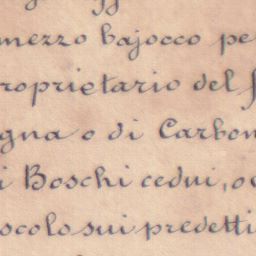 mezzo bajocco pe
roprietario del f
gna o di Carbon
i Boschi cedui, o
ocolo sui predetti